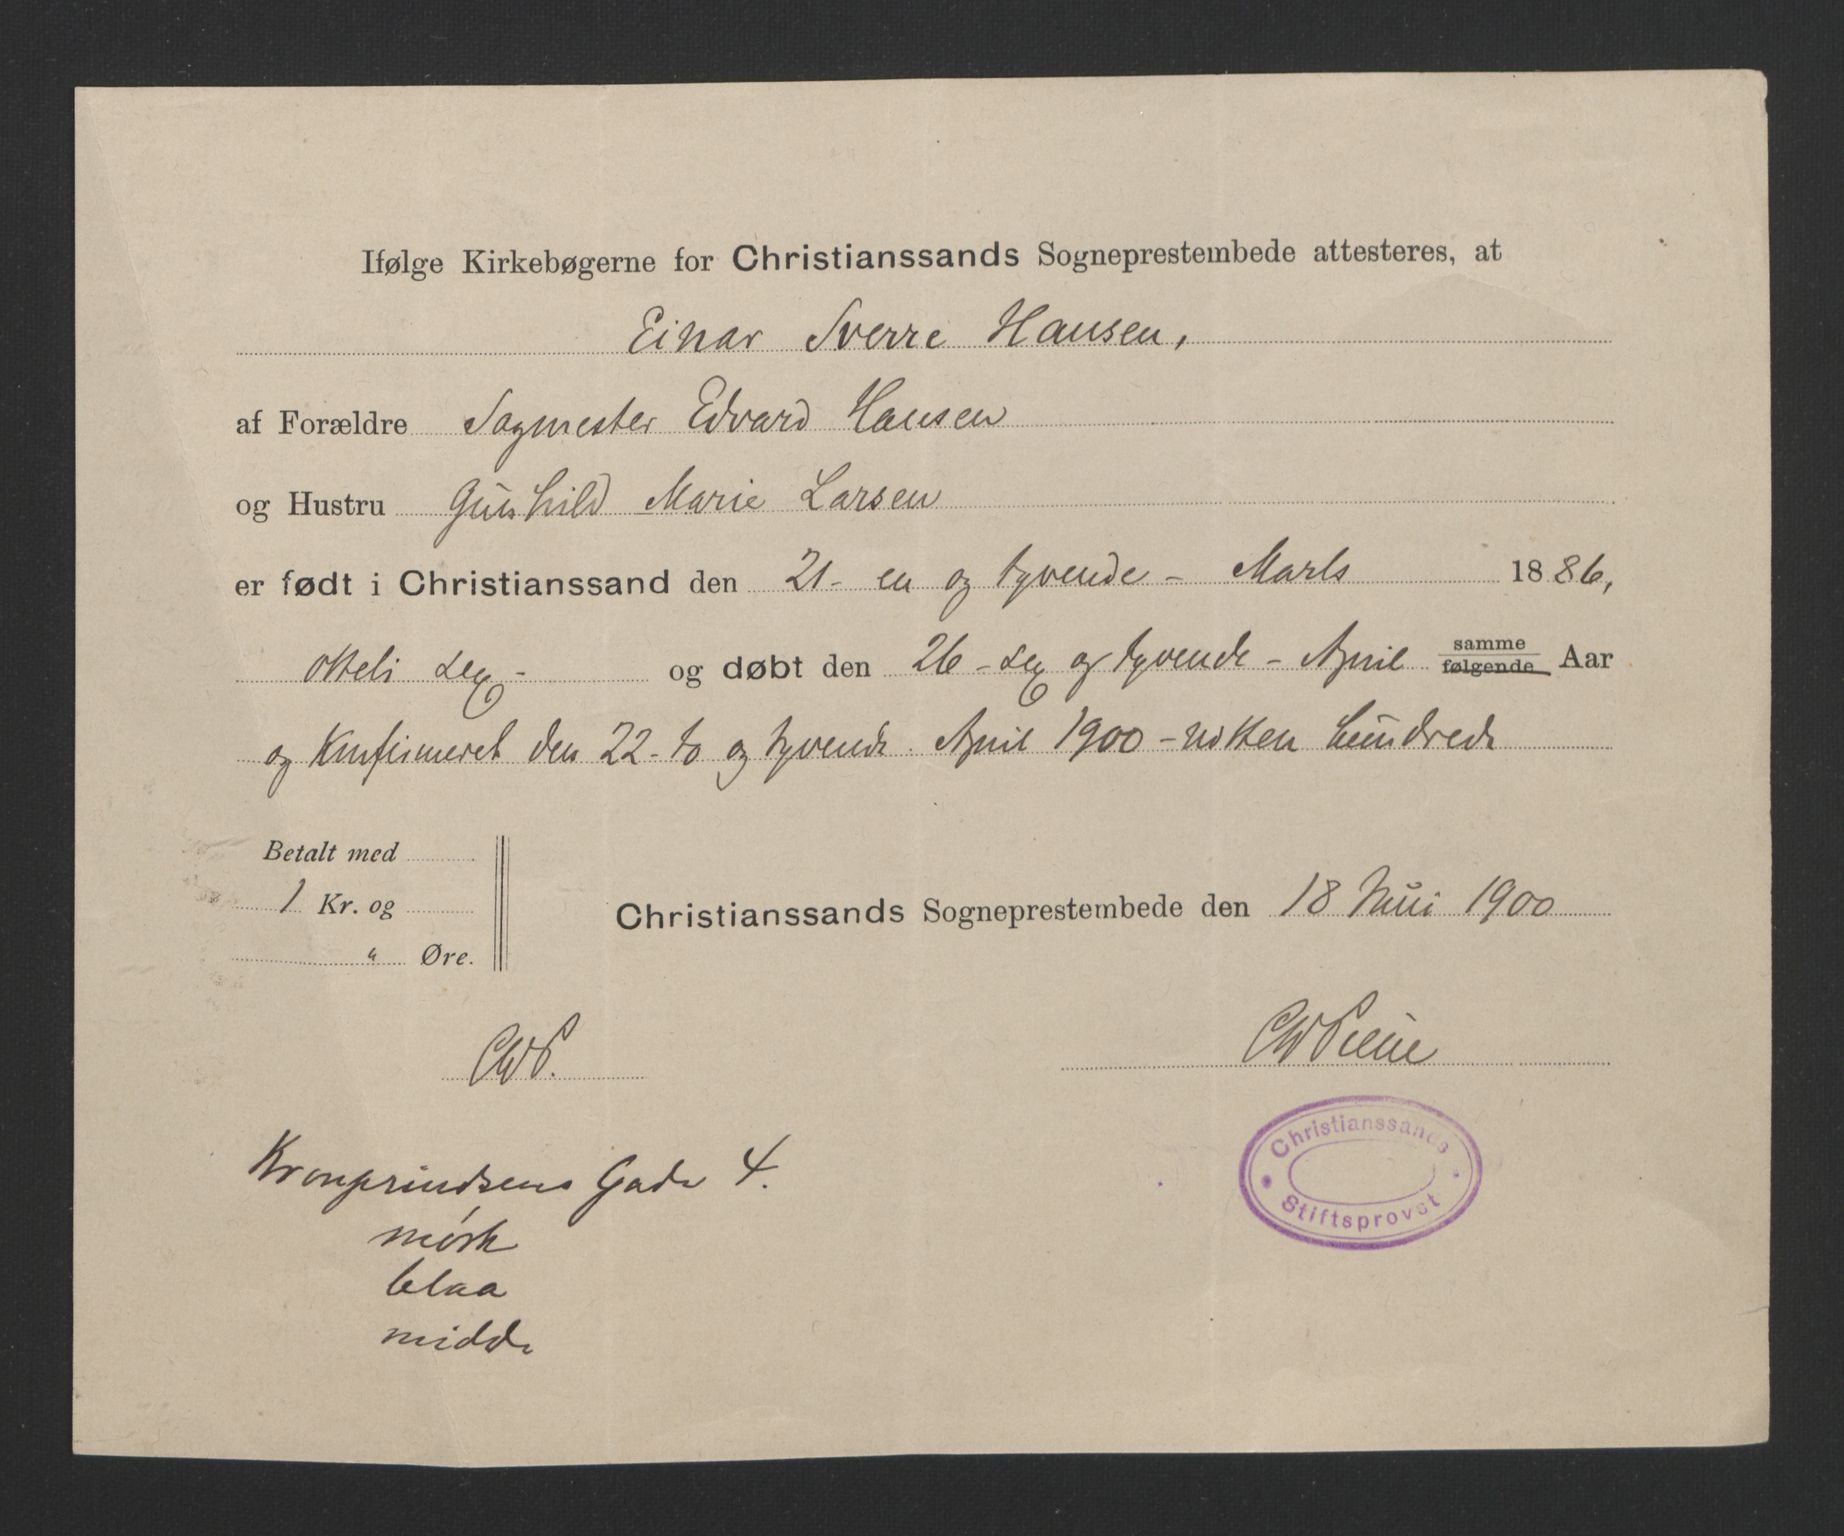 Ifølge Kirkebøgerne for Christianssands Sogneprestembede attesteres, at
Einar Sverre Hansen,
af Forældre Sagmester Edvard Hansen
og Hustru Gunhild Marie Larsen
er født i Christianssand den 21 - en og tyvende - Marts 1886,
otteti sex - og døbt den 26 - sex og tyvende - April samme følgende Aar
og Konfirmeret den 22 - to og tyvende April 1900 - nitten hundrede
Betalt med
1 Kr. og
" Øre.
Christianssands Sogneprestembede den 18 Juni 1900
CWP.
CW
Kronprindsens Gade 4.
mørk
blaa
midde
Christianssands
Stiftsprovst